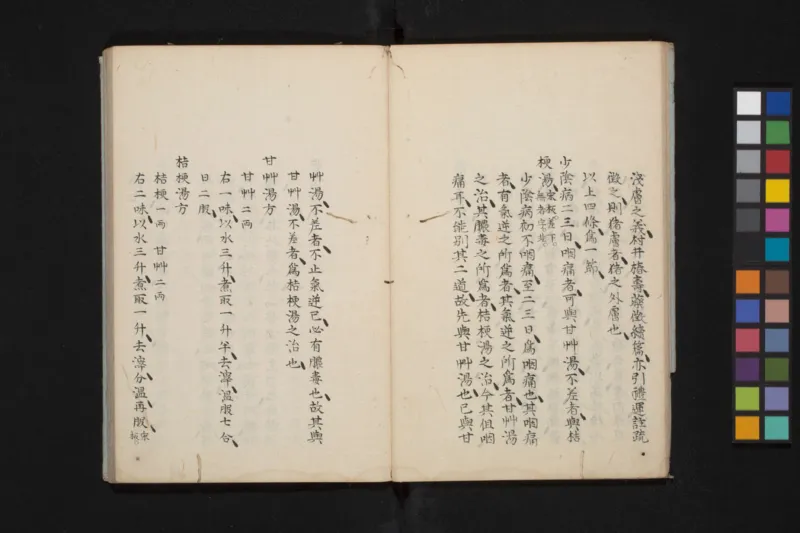 淺膚之義村井椿壽藥徵續篇亦引禮運註疏
徵之則猪膚者猪之外膚也
以上四條爲一節
少陰病二三日咽痛者可與甘艸湯不差者與桔
梗湯
少陰病初不咽痛至二三日爲咽痛也其咽痛
者有氣逆之所爲者其氣逆之所爲者甘艸湯
之治其膿毒之所爲者桔梗湯之治今其但咽
痛耳不能別其二道故先與甘艸湯也已與甘
艸湯不差者不止氣逆已必有膿毒也故其與
甘艸湯不差者爲桔梗湯之治也
甘艸湯方
甘艸二兩
右一味以水三升煮取一升半去滓溫服七合
日二服
桔梗湯方
桔梗一兩 甘艸二兩
右二味以水三升煮取一升去滓分溫再服